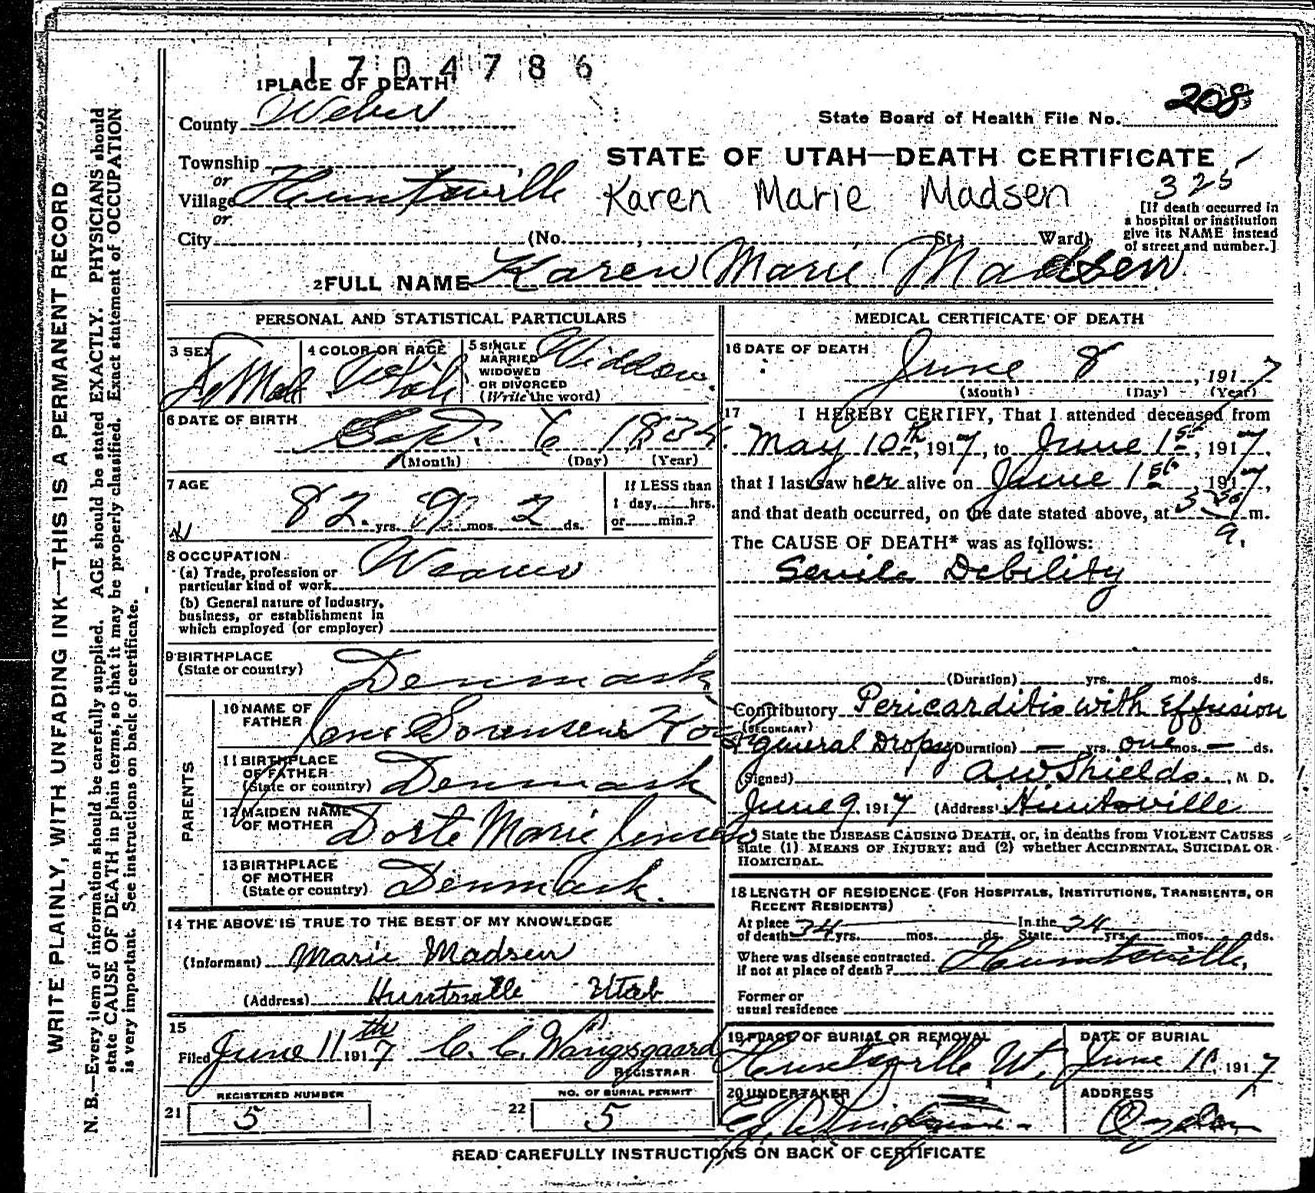 1704786
1 PLACE OF DEATH
County Weber
State Board of Health File No. 208
Township
or
Village Huntsville
or
City (No. , St.; Ward)
STATE OF UTAH—DEATH CERTIFICATE
Karen Marie Madsen
325
[If death occurred in
a hospital or institution
give its NAME instead
of street and number.]
2 FULL NAME Karen Marie Madsen
PERSONAL AND STATISTICAL PARTICULARS
3 SEX
4 COLOR OR RACE
5 SINGLE
MARRIED
WIDOWED
OR DIVORCED
(Write the word)
Widdow.
6 DATE OF BIRTH
Sep. 6 1834.
(Month) (Day) (Year)
7 AGE
82. yrs. 9 mos. 2 ds.
If LESS than
1 day, hrs.
or min.?
8 OCCUPATION
(a) Trade, profession or
particular kind of work Weaver
(b) General nature of Industry,
business, or establishment in
which employed (or employer)
9 BIRTHPLACE
(State or country) Denmark
PARENTS
10 NAME OF
FATHER Sorensen
11 BIRTHPLACE
OF FATHER
(State or country) Denmark
12 MAIDEN NAME
OF MOTHER Dorte Marie Jensen
13 BIRTHPLACE
OF MOTHER
(State or country) Denmark.
14 THE ABOVE IS TRUE TO THE BEST OF MY KNOWLEDGE
(Informant) Marie Madsen
(Address) Huntsville Utah
15
Filed June 11th 1917 C. C. Wangsgaard
REGISTRAR
REGISTERED NUMBER
21 5
NO. OF BURIAL PERMIT
22 5
MEDICAL CERTIFICATE OF DEATH
16 DATE OF DEATH
June 8, 1917
(Month) (Day) (Year)
17 I HEREBY CERTIFY, That I attended deceased from
May 10th, 1917, to June 1st, 1917,
that I last saw her alive on June 1st, 1917,
and that death occurred, on the date stated above, at 3 a. m.
The CAUSE OF DEATH* was as follows:
Senile Debility
(Duration) yrs. mos. ds.
Contributory Pericarditis with Effusion
(SECONDARY)
& general Dropsy (Duration) — yrs. one mos. — ds.
(Signed) A W Shields. M. D.
June 9, 1917 (Address) Huntsville
State the DISEASE CAUSING DEATH, or, in deaths from VIOLENT CAUSES
state (1) MEANS OF INJURY; and (2) whether ACCIDENTAL, SUICIDAL OR
HOMICIDAL.
18 LENGTH OF RESIDENCE (FOR HOSPITALS, INSTITUTIONS, TRANSIENTS, OR
RECENT RESIDENTS)
At place
of death 34 yrs. mos. ds.
In the
State 34 yrs. mos. ds.
Where was disease contracted.
if not at place of death? Huntsville.
Former or
usual residence
19 PLACE OF BURIAL OR REMOVAL
Huntsville Ut.
DATE OF BURIAL
June 11, 1917
20 UNDERTAKER
ADDRESS
Ogden
READ CAREFULLY INSTRUCTIONS ON BACK OF CERTIFICATE
WRITE PLAINLY, WITH UNFADING INK—THIS IS A PERMANENT RECORD
N. B.—Every item of information should be carefully supplied. AGE should be stated EXACTLY. PHYSICIANS should
state CAUSE OF DEATH in plain terms, so that it may be properly classified. Exact statement of OCCUPATION
is very important. See instructions on back of certificate.